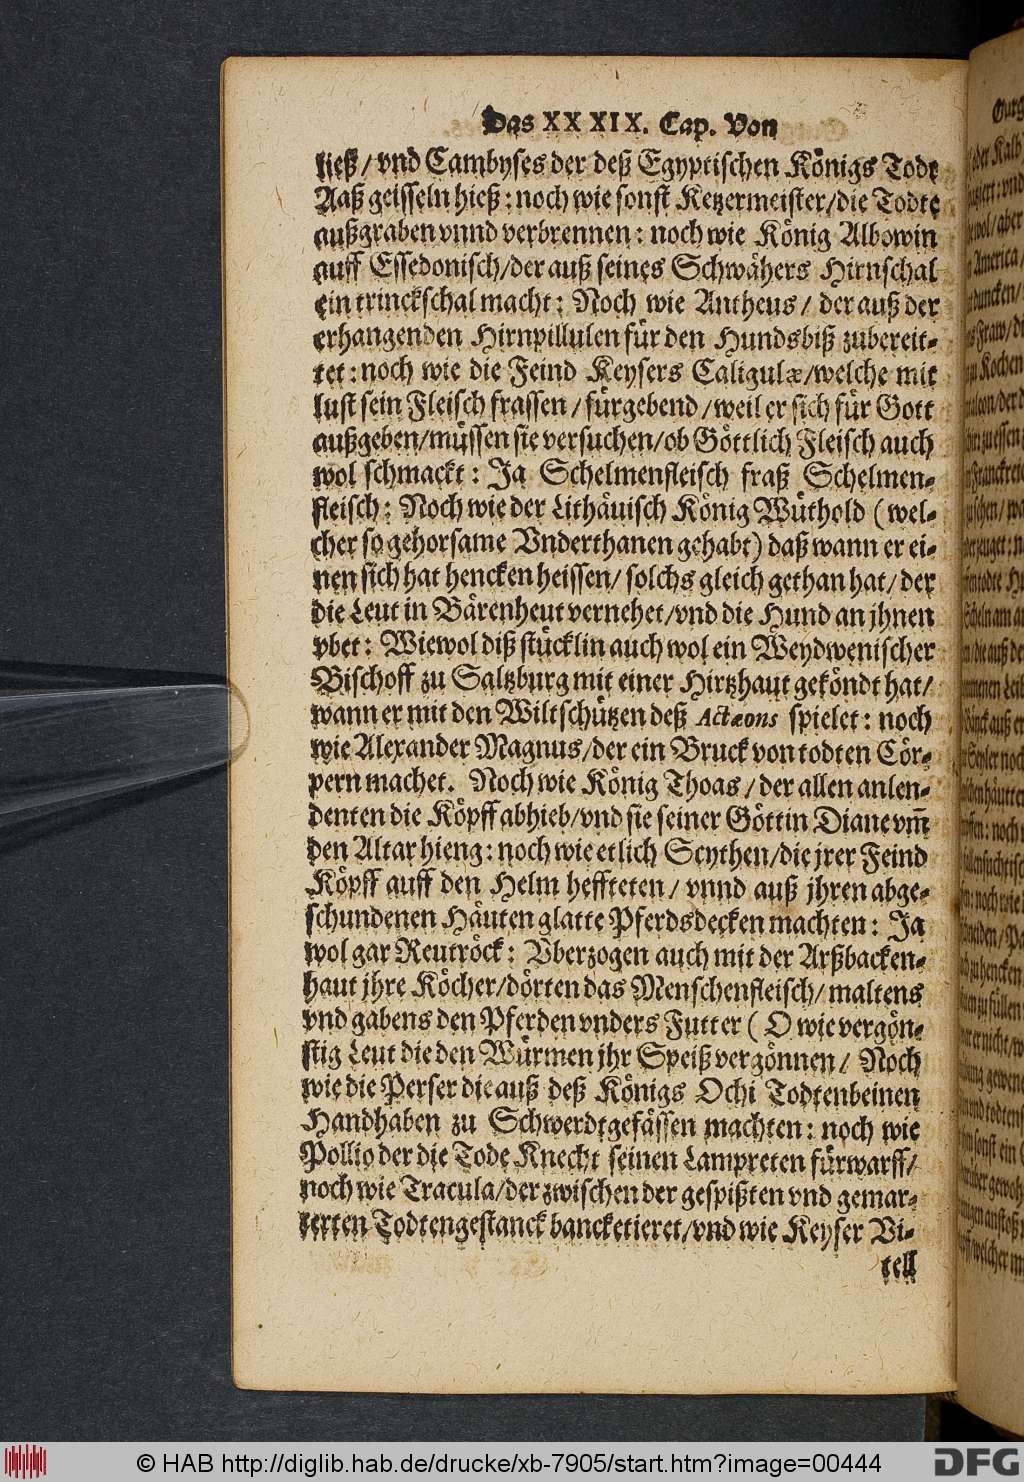 Das XXXIX. Cap. Von
ließ/ vnd Cambyses der deß Egyptischen Königs Todt
Aaß geisseln hieß: noch wie sonst Ketzermeister/ die Todte
außgraben vnnd verbrennen: noch wie König Albowin
auff Essedonisch/ der auß seines Schwähers Hirnschal
ein trinckschal macht: Noch wie Antheus/ der auß der
erhangenden Hirnpillulen für den Hundsbiß zubereit-
tet: noch wie die Feind Keysers Caligulæ/ welche mit
lust sein Fleisch frassen/ fürgebend/ weil er sich für Gott
außgeben/ müssen sie versuchen/ ob Göttlich Fleisch auch
wol schmackt: Ja Schelmenfleisch fraß Schelmen-
fleisch: Noch wie der Lithäuisch König Wüthold (wel-
cher so gehorsame Vnderthanen gehabt) daß wann er ei-
nen sich hat hencken heissen/ solchs gleich gethan hat/ der
die Leut in Bärenheut vernehet/ vnd die Hund an jhnen
vbet: Wiewol diß stücklin auch wol ein Weydwenischer
Bischoff zu Saltzburg mit einer Hirtzhaut geköndt hat/
wann er mit den Wiltschützen deß Actæons spielet: noch
wie Alexander Magnus/ der ein Bruck von todten Cör-
pern machet. Noch wie König Thoas/ der allen anlen-
denten die Köpff abhieb/ vnd sie seiner Göttin Diane vm̃
den Altar hieng: noch wie etlich Scythen/ die jrer Feind
Köpff auff den Helm heffteten/ vnnd auß jhren abge-
schundenen Häuten glatte Pferdsdecken machten: Ja
wol gar Reutröck: Vberzogen auch mit der Arßbacken-
haut jhre Köcher/ dörten das Menschenfleisch/ maltens
vnd gabens den Pferden vnders Futter (O wie vergön-
stig Leut die den Würmen jhr Speiß vergönnen/ Noch
wie die Perser die auß deß Königs Ochi Todtenbeinen
Handhaben zu Schwerdtgefässen machten: noch wie
Pollio der die Tode Knecht seinen Lampreten fürwarff/
noch wie Tracula/ der zwischen der gespißten vnd gemar-
terten Todtengestanck bancketieret/ vnd wie Keyser Vi-
tell
© HAB http://diglib.hab.de/drucke/xb-7905/start.htm?image=00444
DFG